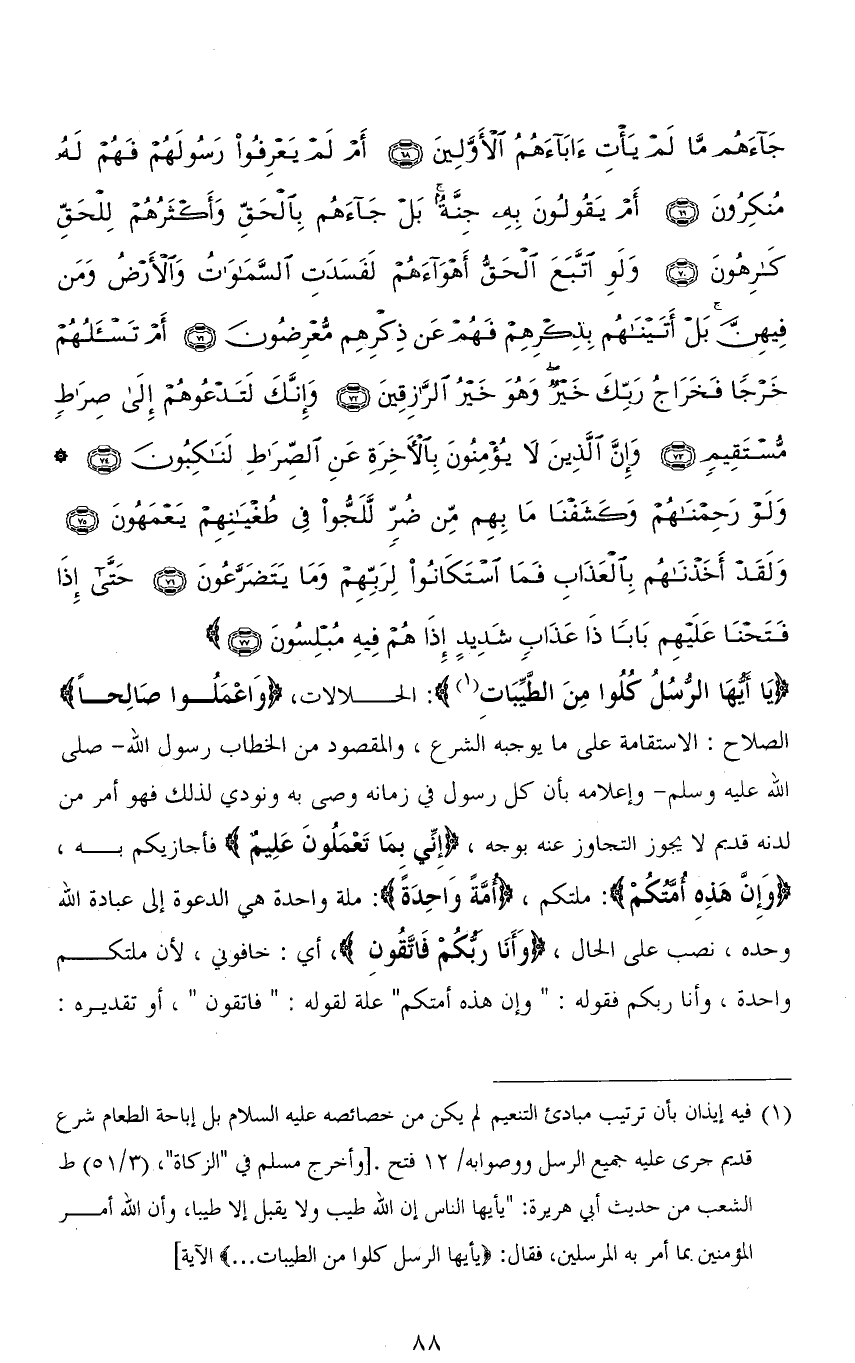 جَآءَهُم مَّا لَمْ يَأْتِ ءَابَآءَهُمُ ٱلْأَوَّلِينَ ﴿٦٨﴾ أَمْ لَمْ يَعْرِفُوا۟ رَسُولَهُمْ فَهُمْ لَهُۥ
مُنكِرُونَ ﴿٦٩﴾ أَمْ يَقُولُونَ بِهِۦ جِنَّةٌۢ ۚ بَلْ جَآءَهُم بِٱلْحَقِّ وَأَكْثَرُهُمْ لِلْحَقِّ
كَـٰرِهُونَ ﴿٧٠﴾ وَلَوِ ٱتَّبَعَ ٱلْحَقُّ أَهْوَآءَهُمْ لَفَسَدَتِ ٱلسَّمَـٰوَٰتُ وَٱلْأَرْضُ وَمَن
فِيهِنَّ ۚ بَلْ أَتَيْنَـٰهُم بِذِكْرِهِمْ فَهُمْ عَن ذِكْرِهِم مُّعْرِضُونَ ﴿٧١﴾ أَمْ تَسْـَٔلُهُمْ
خَرْجًا فَخَرَاجُ رَبِّكَ خَيْرٌ ۖ وَهُوَ خَيْرُ ٱلرَّٰزِقِينَ ﴿٧٢﴾ وَإِنَّكَ لَتَدْعُوهُمْ إِلَىٰ صِرَٰطٍ
مُّسْتَقِيمٍ ﴿٧٣﴾ وَإِنَّ ٱلَّذِينَ لَا يُؤْمِنُونَ بِٱلْـَٔاخِرَةِ عَنِ ٱلصِّرَٰطِ لَنَـٰكِبُونَ ﴿٧٤﴾ *
وَلَوْ رَحِمْنَـٰهُمْ وَكَشَفْنَا مَا بِهِم مِّن ضُرٍّ لَّلَجُّوا۟ فِى طُغْيَـٰنِهِمْ يَعْمَهُونَ ﴿٧٥﴾
وَلَقَدْ أَخَذْنَـٰهُم بِٱلْعَذَابِ فَمَا ٱسْتَكَانُوا۟ لِرَبِّهِمْ وَمَا يَتَضَرَّعُونَ ﴿٧٦﴾ حَتَّىٰٓ إِذَا
فَتَحْنَا عَلَيْهِم بَابًا ذَا عَذَابٍ شَدِيدٍ إِذَا هُمْ فِيهِ مُبْلِسُونَ ﴿٧٧﴾ ﴾
﴿يَا أَيُّهَا الرُّسُلُ كُلُوا مِنَ الطَّيِّبَاتِ(١) ﴾: الحلالات، ﴿وَاعْمَلُوا صَالِحاً﴾
الصلاح : الاستقامة على ما يوجبه الشرع ، والمقصود من الخطاب رسول الله- صلى
الله عليه وسلم- وإعلامه بأن كل رسول في زمانه وصى به ونودي لذلك فهو أمر من
لدنه قديم لا يجوز التجاوز عنه بوجه ، ﴿إِنِّي بِمَا تَعْمَلُونَ عَلِيمٌ ﴾ فأجازيكم به ،
﴿وَإِنَّ هَذِهِ أُمَّتُكُمْ﴾: ملتكم ، ﴿أُمَّةً وَاحِدَةً﴾: ملة واحدة هي الدعوة إلى عبادة الله
وحده ، نصب على الحال ، ﴿وَأَنَا رَبُّكُمْ فَاتَّقُونِ ﴾، أي : خافوني ، لأن ملتكم
واحدة ، وأنا ربكم فقوله : " وإن هذه أمتكم" علة لقوله : " فاتقون " ، أو تقديره :
(١) فيه إيذان بأن ترتيب مبادئ التنعيم لم يكن من خصائصه عليه السلام بل إباحة الطعام شرع
قديم جرى عليه جميع الرسل ووصوابه/ ١٢ فتح .[وأخرج مسلم في "الزكاة"، (٥١/٣) ط
الشعب من حديث أبي هريرة: "يأيها الناس إن الله طيب ولا يقبل إلا طيبا، وأن الله أمر
المؤمنين بما أمر به المرسلين، فقال: ﴿يأيها الرسل كلوا من الطيبات...﴾ الآية]
٨٨